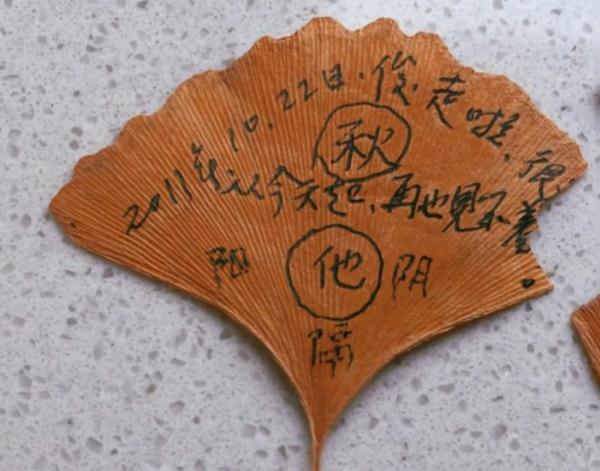 2011年10.22日.俊走啦.很
秋
从今天起,再也見不着。
他 阴
隔